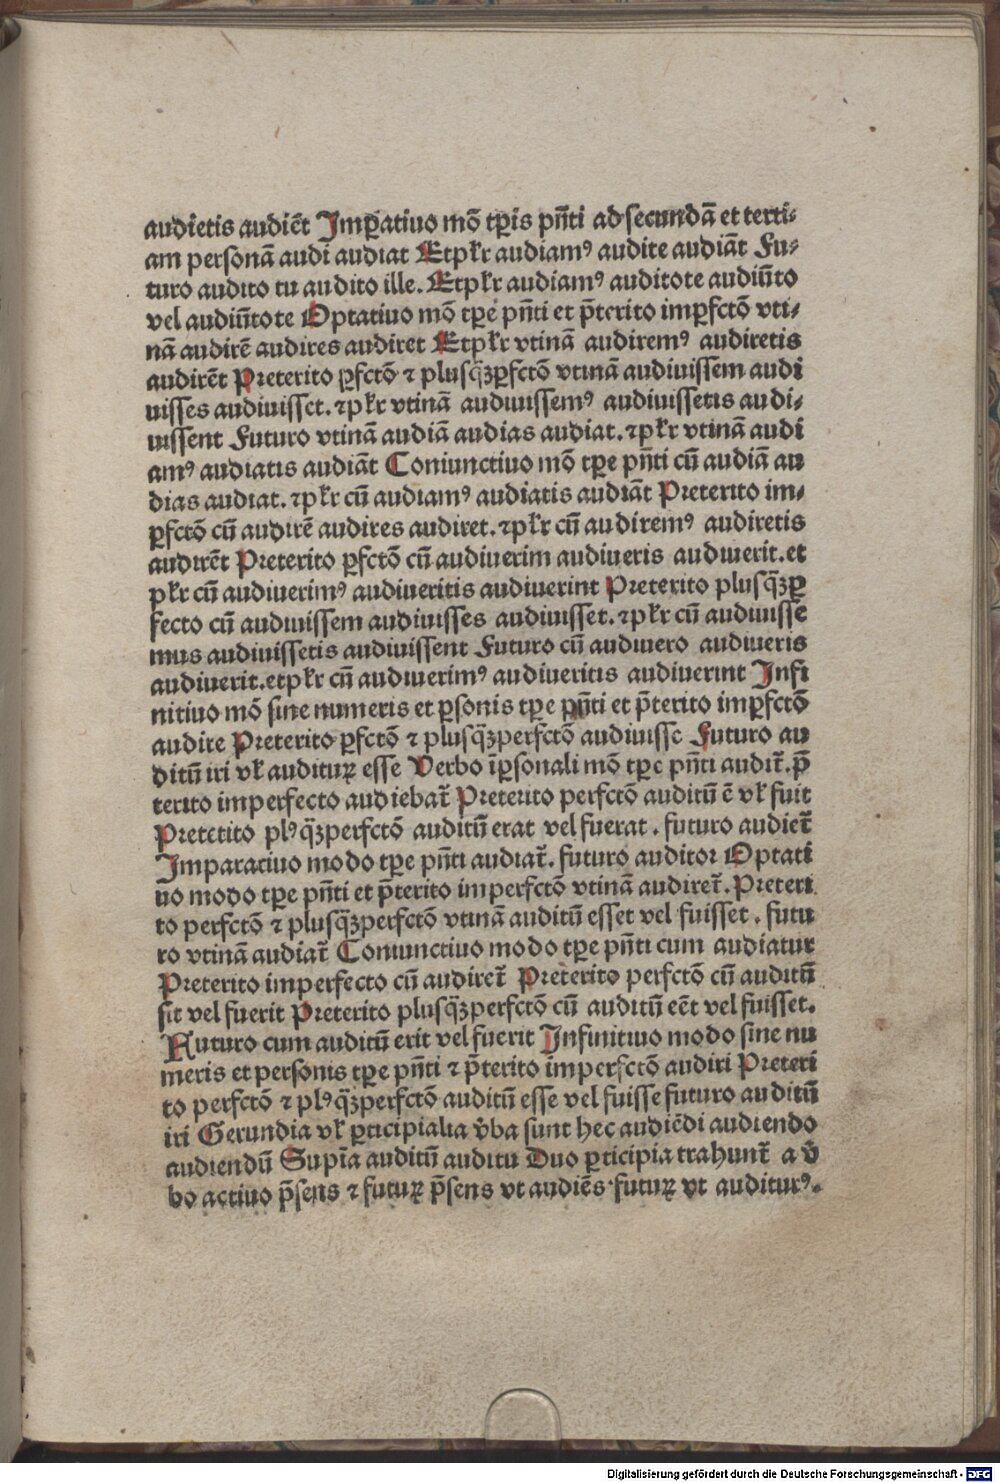 audietis audiēt Imꝑatiuo mō tꝑis pn̄ti ad secundā et terti⸗
am personā audi audiat Etpl̄r audiamꝰ audite audiāt Fu⸗
turo audito tu audito ille. Etpl̄r audiamꝰ auditote audiūto
vel audiūtote Optatiuo mō tꝑe pn̄ti et p̄terito imꝑfctō vti⸗
nā audirē audires audiret Etpl̄r vtinā audiremꝰ audiretis
audirēt Preterito ꝑfctō ⁊ plusq̄ꝫꝑfctō vtinā audiuissem audi
uisses audiuisset. ⁊pl̄r vtinā audiuissemꝰ audiuissetis audi⸗
uissent Futuro vtinā audiā audias audiat. ⁊pl̄r vtinā audi
amꝰ audiatis audiāt Coniunctiuo mō tꝑe pn̄ti cū audiā au
dias audiat. ⁊pl̄r cū audiamꝰ audiatis audiāt Preterito im⸗
ꝑfctō cū audirē audires audiret. ⁊pl̄r cū audiremꝰ audiretis
audirēt Preterito ꝑfctō cū audiuerim audiueris audiuerit. et
pl̄r cū audiuerimꝰ audiueritis audiuerint Preterito plusq̄ꝫꝑ
fecto cū audiuissem audiuisses audiuisset. ⁊pl̄r cū audiuisse
mus audiuissetis audiuissent Futuro cū audiuero audiueris
audiuerit. etpl̄r cū audiuerimꝰ audiueritis audiuerint Infi
nitiuo mō sine numeris et ꝑsonis tꝑe pn̄ti et p̄terito imꝑfctō
audire Preterito ꝑfctō ⁊ plusq̄ꝫperfctō audiuisse Futuro au
ditū iri vl̄ audituꝝ esse Verbo īꝑsonali mō tꝑe pn̄ti audit̄. p̄
terito imperfecto audiebat̄ Preterito perfctō auditū ē vl̄ fuit
Pretetito plꝰq̄ꝫperfctō auditū erat vel fuerat. futuro audiet̄
Imparatiuo modo tꝑe pn̄ti audiat̄. futuro auditor Optati
uo modo tꝑe pn̄ti et p̄terito imperfctō vtinā audiret̄. Preteri
to perfctō ⁊ plusq̄ꝫperfctō vtinā auditū esset vel fuisset. futu
ro vtinā audiat̄ Coniunctiuo modo tꝑe pn̄ti cum audiatur
Preterito imperfecto cū audiret̄ Preterito perfctō cū auditū
sit vel fuerit Preterito plusq̄ꝫperfctō cū auditū eēt vel fuisset.
Futuro cum auditū erit vel fuerit Infinitiuo modo sine nu
meris et personis tꝑe pn̄ti ⁊ p̄terito imperfctō audiri Preteri
to perfctō ⁊ plꝰq̄ꝫperfctō auditū esse vel fuisse futuro auditū
iri Gerundia vl̄ ꝑticipialia v̄ba sunt hec audiēdi audiendo
audiendū Supīa auditū auditu Duo ꝑticipia trahunt̄ a v̄
bo actiuo p̄sens ⁊ futuꝝ p̄sens vt audiēs futuꝝ vt auditurꝰ.
Digitalisierung gefördert durch die Deutsche Forschungsgemeinschaft - DFG